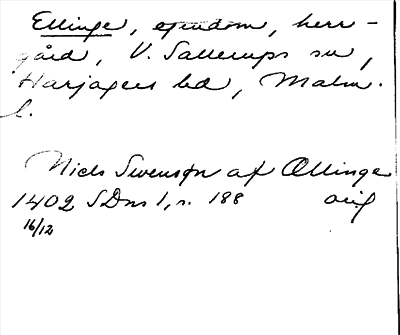 Ellinge, egendom, herr-
gård, V. Sallerups sn,
Harjagers hd, Malm.
l.
Niels Swensøn af Ællinge
1402 SDns 1, s. 188 orig
16/12